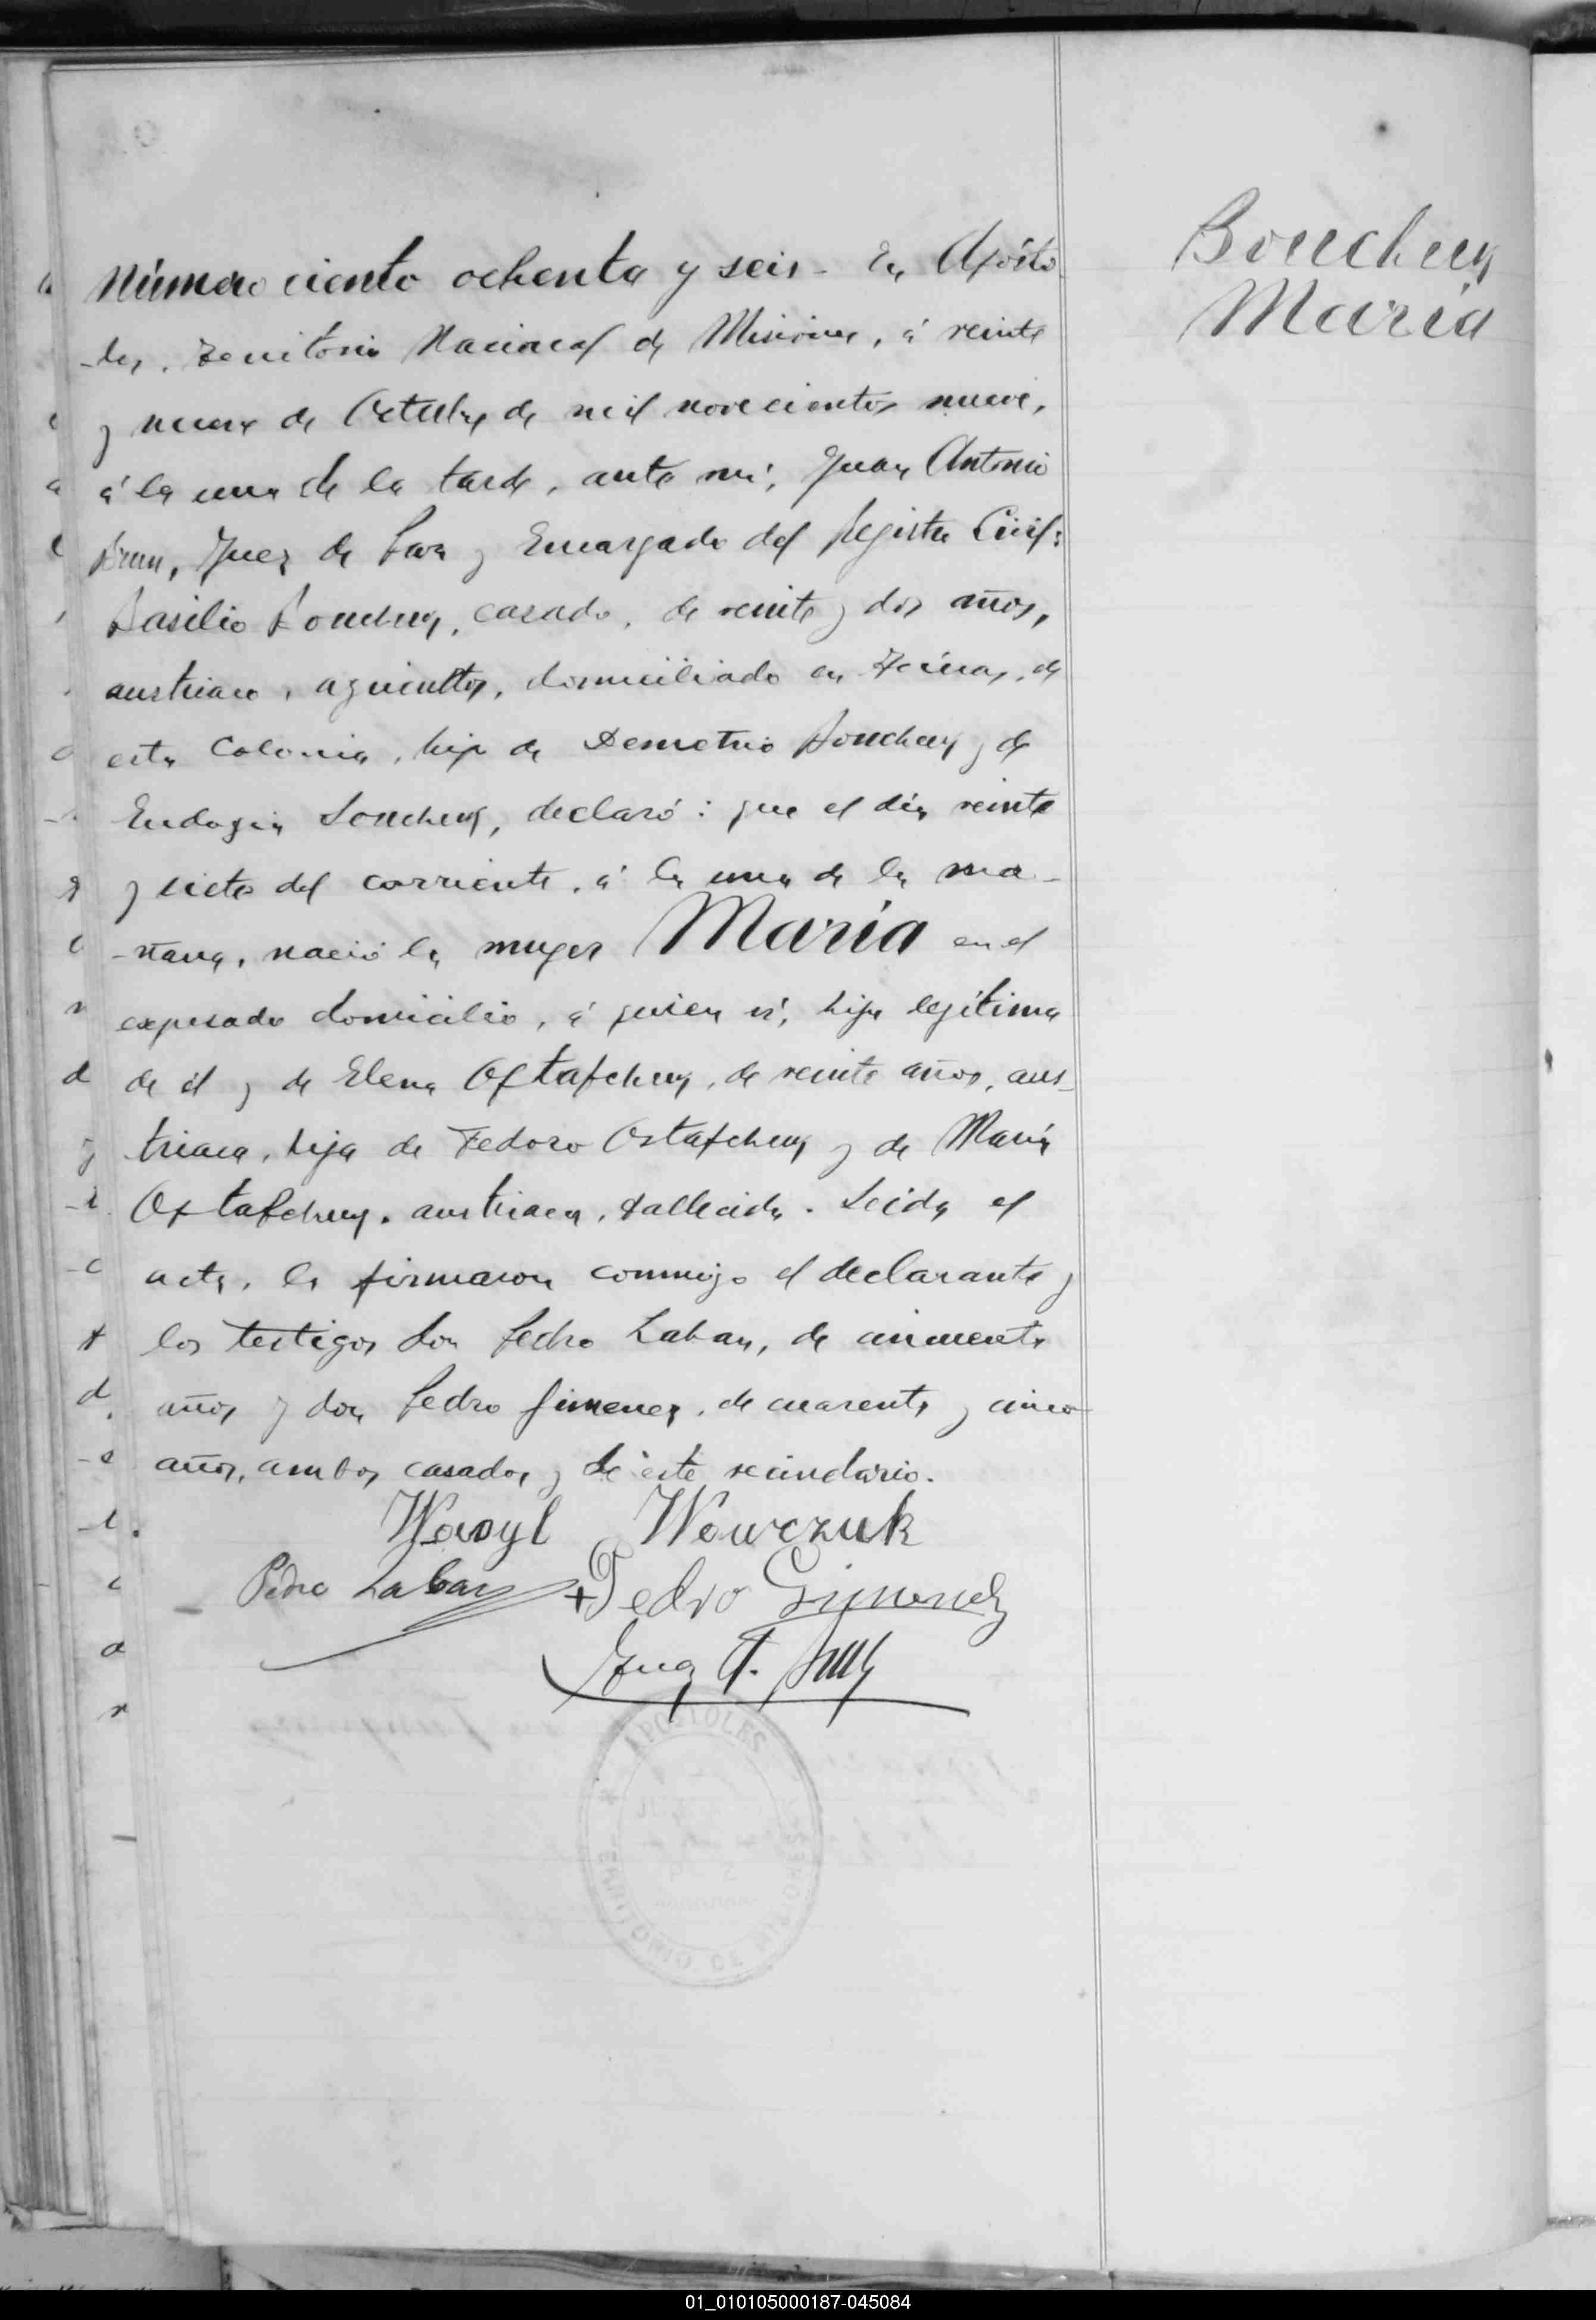 Bouchuy
María
Número ciento ochenta y seis - En Aposto
-les, Territorio Nacional de Misiones, á veinte
y nueve de Octubre de mil novecientos nueve,
á la una de la tarde, ante mí, Juan Antonio
Brun, Juez de Paz y Encargado del Registro Civil:
Basilio Bouchuy, casado, de veinte y dos años,
austriaco, agricultor, domiciliado en de
esta Colonia, hijo de Demetrio Bouchuy y de
Eudogia Bouchuy, declaró: que el día veinte
y siete del corriente, á la una de la ma-
-ñana, nació la mujer María en el
expresado domicilio, á quien ví, hija legítima
de él y de Elena Ostafchuy, de veinte años, aus-
triaca, hija de Fedoro Ostafchuy y de María
Ostafchuy, austriaca, fallecida. Leida el
acta, la firmaron conmigo el declarante y
los testigos don Pedro Labay, de cincuenta
años y don Pedro Jimenez, de cuarenta y cinco
años, ambos casados y de éste vecindario.
Wasyl Wowczuk
Pedro Labay Pedro Gimenez
Juan A. Brun
APOSTOLES
TERRITORIO DE MISIONES
01_010105000187-045084